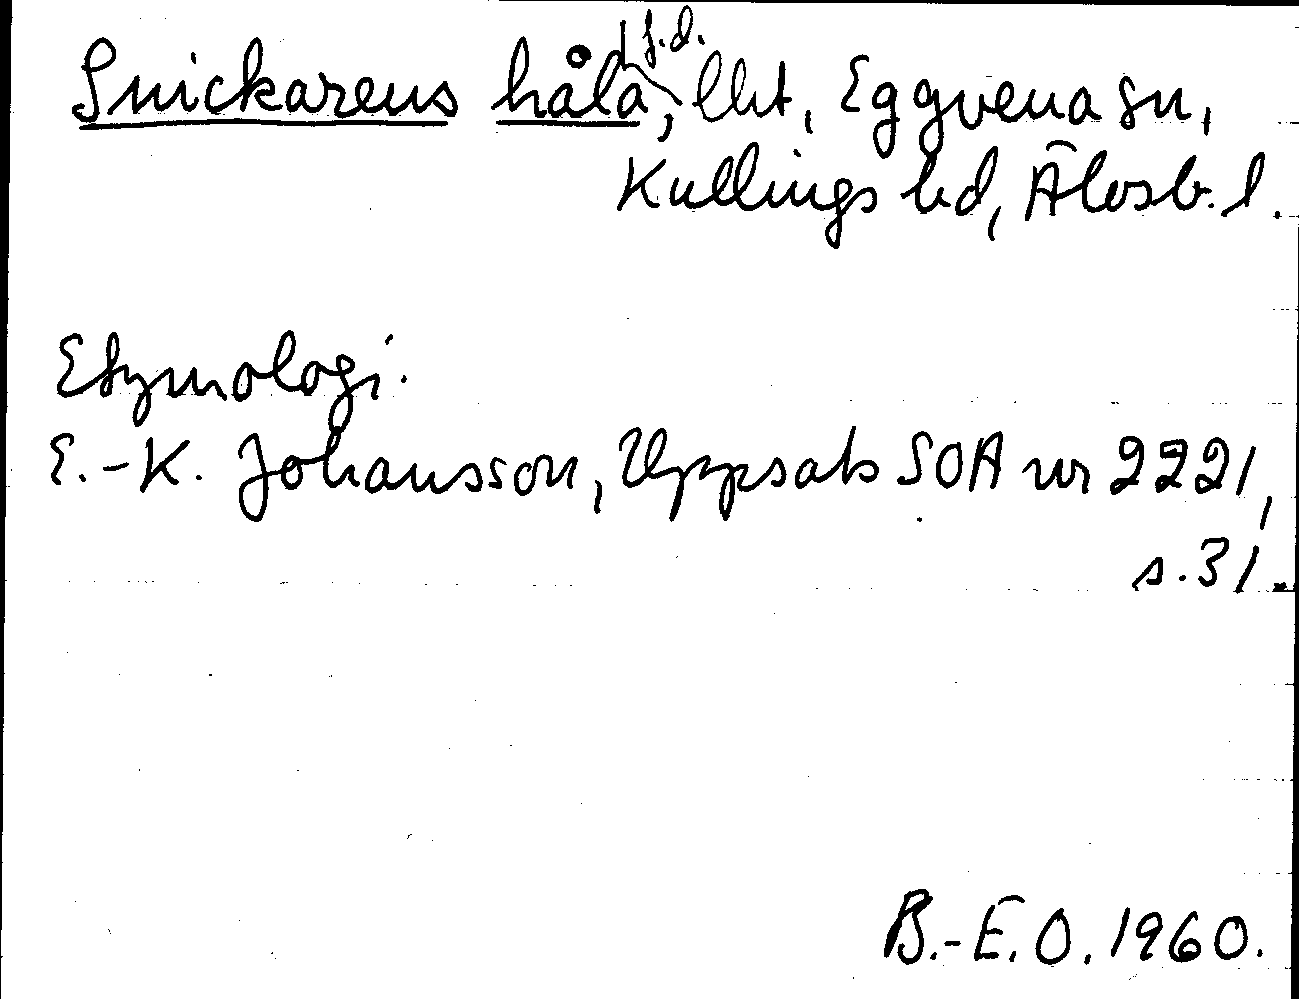 Snickarens håla, f.d. lht, Eggvena sn,
Kullings hd, Älvsb. l.
Etymologi.
E.-K. Johansson, Uppsats SOA nr 2221,
s. 31.
B.-E. O. 1960.